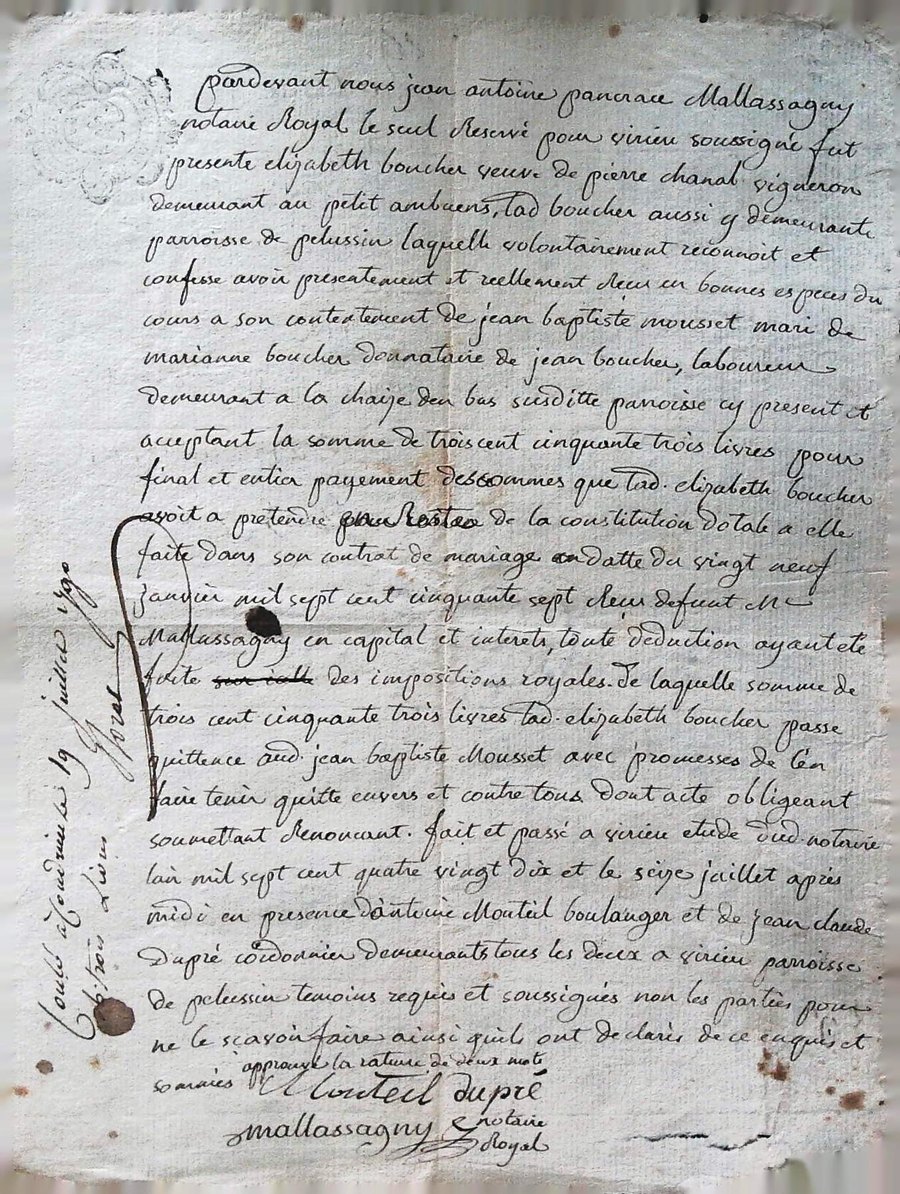 pardevant nous jean antoine pancrace Mallassagny
notaire Royal le seul Reservé pour virieu soussigné fut
presente elizabeth boucher veuve de pierre chanal vigneron
demeurant au petit ambuens, lad boucher aussi y demeurante
parroisse de pelussin laquelle volontairement reconnoit et
confesse avoir presentement et reellement Receu en bonnes especes du
cours a son contentement de jean baptiste mousset mari de
marianne boucher donnataire de jean boucher, laboureur
demeurant a la chaize den bas susditte parroisse cy present et
acceptant la somme de trois cent cinquante trois livres pour
final et entier payement des sommes que lad. elizabeth boucher
avoit a pretendre de la constitution dotale a elle
faite dans son contrat de mariage en datte du vingt neuf
janvier mil sept cent cinquante sept Receu defunt Me
Mallassagny en capital et interets, toute deduction ayant eté
faite des impositions royales. De laquelle somme de
trois cent cinquante trois livres lad. elizabeth boucher passe
quittence aud. jean baptiste Mousset avec promesses de l'en
faire tenir quitte envers et contre tous Dont acte obligeant
soumettant Renoncant. fait et passé a virieu etude dud notaire
lan mil sept cent quatre vingt dix et le seize juillet après
midi en presence d'antoine Monteil boulanger et de jean claude
Dupré cordonnier demeurants tous les deux a virieu parroisse
de pelussin temoins requis et soussignés non les parties pour
ne le scavoir faire ainsi quils ont declarés de ce enquis et
sommés approuvé la rature de deux mots
Monteil dupré
mallassagny notaire
Royal
le 19 juillet 1790
trois Livres